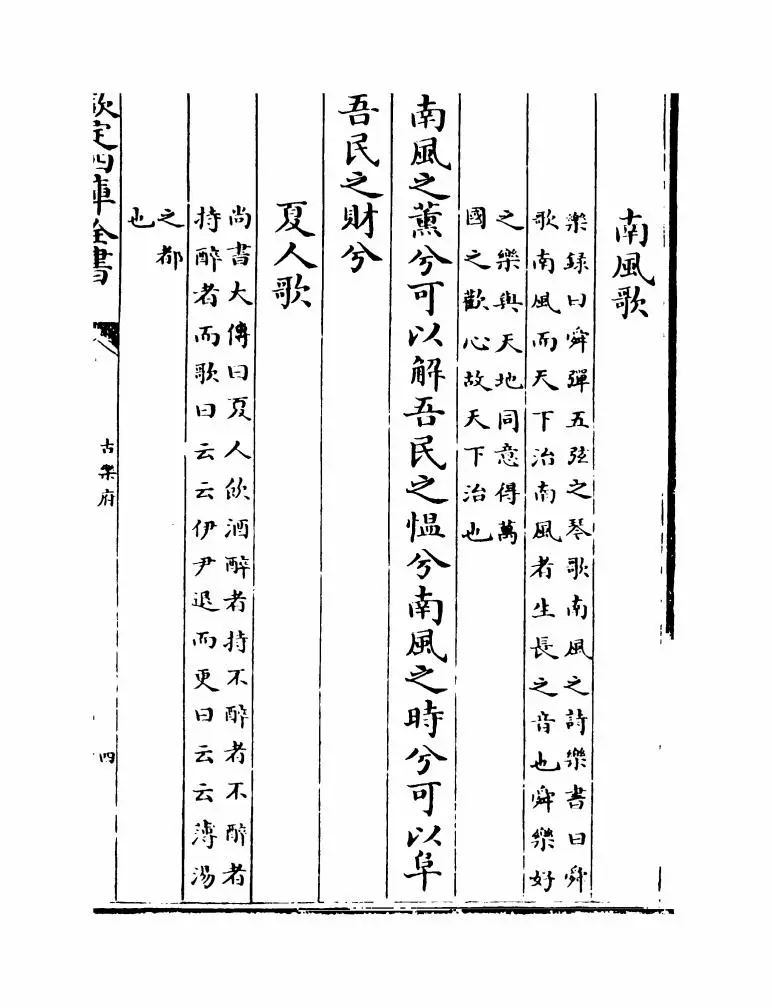 南風歌
樂録曰舜彈五弦之琴歌南風之詩樂書曰舜
歌南風而天下治南風者生長之音也舜樂好
之樂與天地同意得萬
國之歡心故天下治也
南風之薰兮可以解吾民之愠兮南風之時兮可以阜
吾民之財兮
夏人歌
尚書大傳曰夏人飲酒醉者持不醉者不醉者
持醉者而歌曰云云伊尹退而更曰云云薄湯
之都
也
欽定四庫全書
古樂府
四